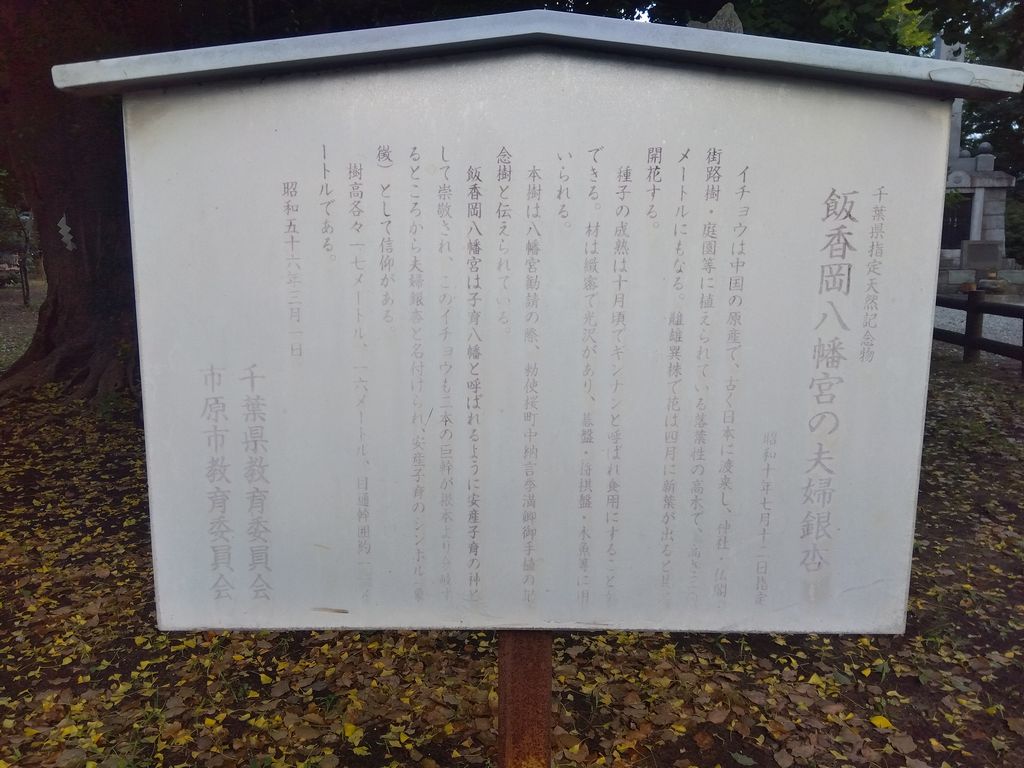 千葉県指定天然記念物
飯香岡八幡宮の夫婦銀杏
昭和十年七月十二日指定
イチョウは中国の原産で、古く日本に渡来し、神社・仏閣・
街路樹・庭園等に植えられている落葉性の高木で、高さ三〇
メートルにもなる。雌雄異株で花は四月に新葉が出ると
開花する。
種子の成熟は十月頃でギンナンと呼ばれ食用にすること
できる。材は緻密で光沢があり、碁盤・将棋盤・木魚等に用
いられる。
本樹は八幡宮勧請の際、勅使桜町中納言季満卿御手植の記
念樹と伝えられている。
飯香岡八幡宮は子育八幡と呼ばれるように安産子育の神と
して崇敬され、このイチョウも二本の巨幹が根本より分岐す
るところから夫婦銀杏と名付けられ、安産子育のシンボル（象
徴）として信仰がある。
樹高各々一七メートル、一六メートル、目通幹囲約一
ートルである。
昭和五十六年三月一日
千葉県教育委員会
市原市教育委員会